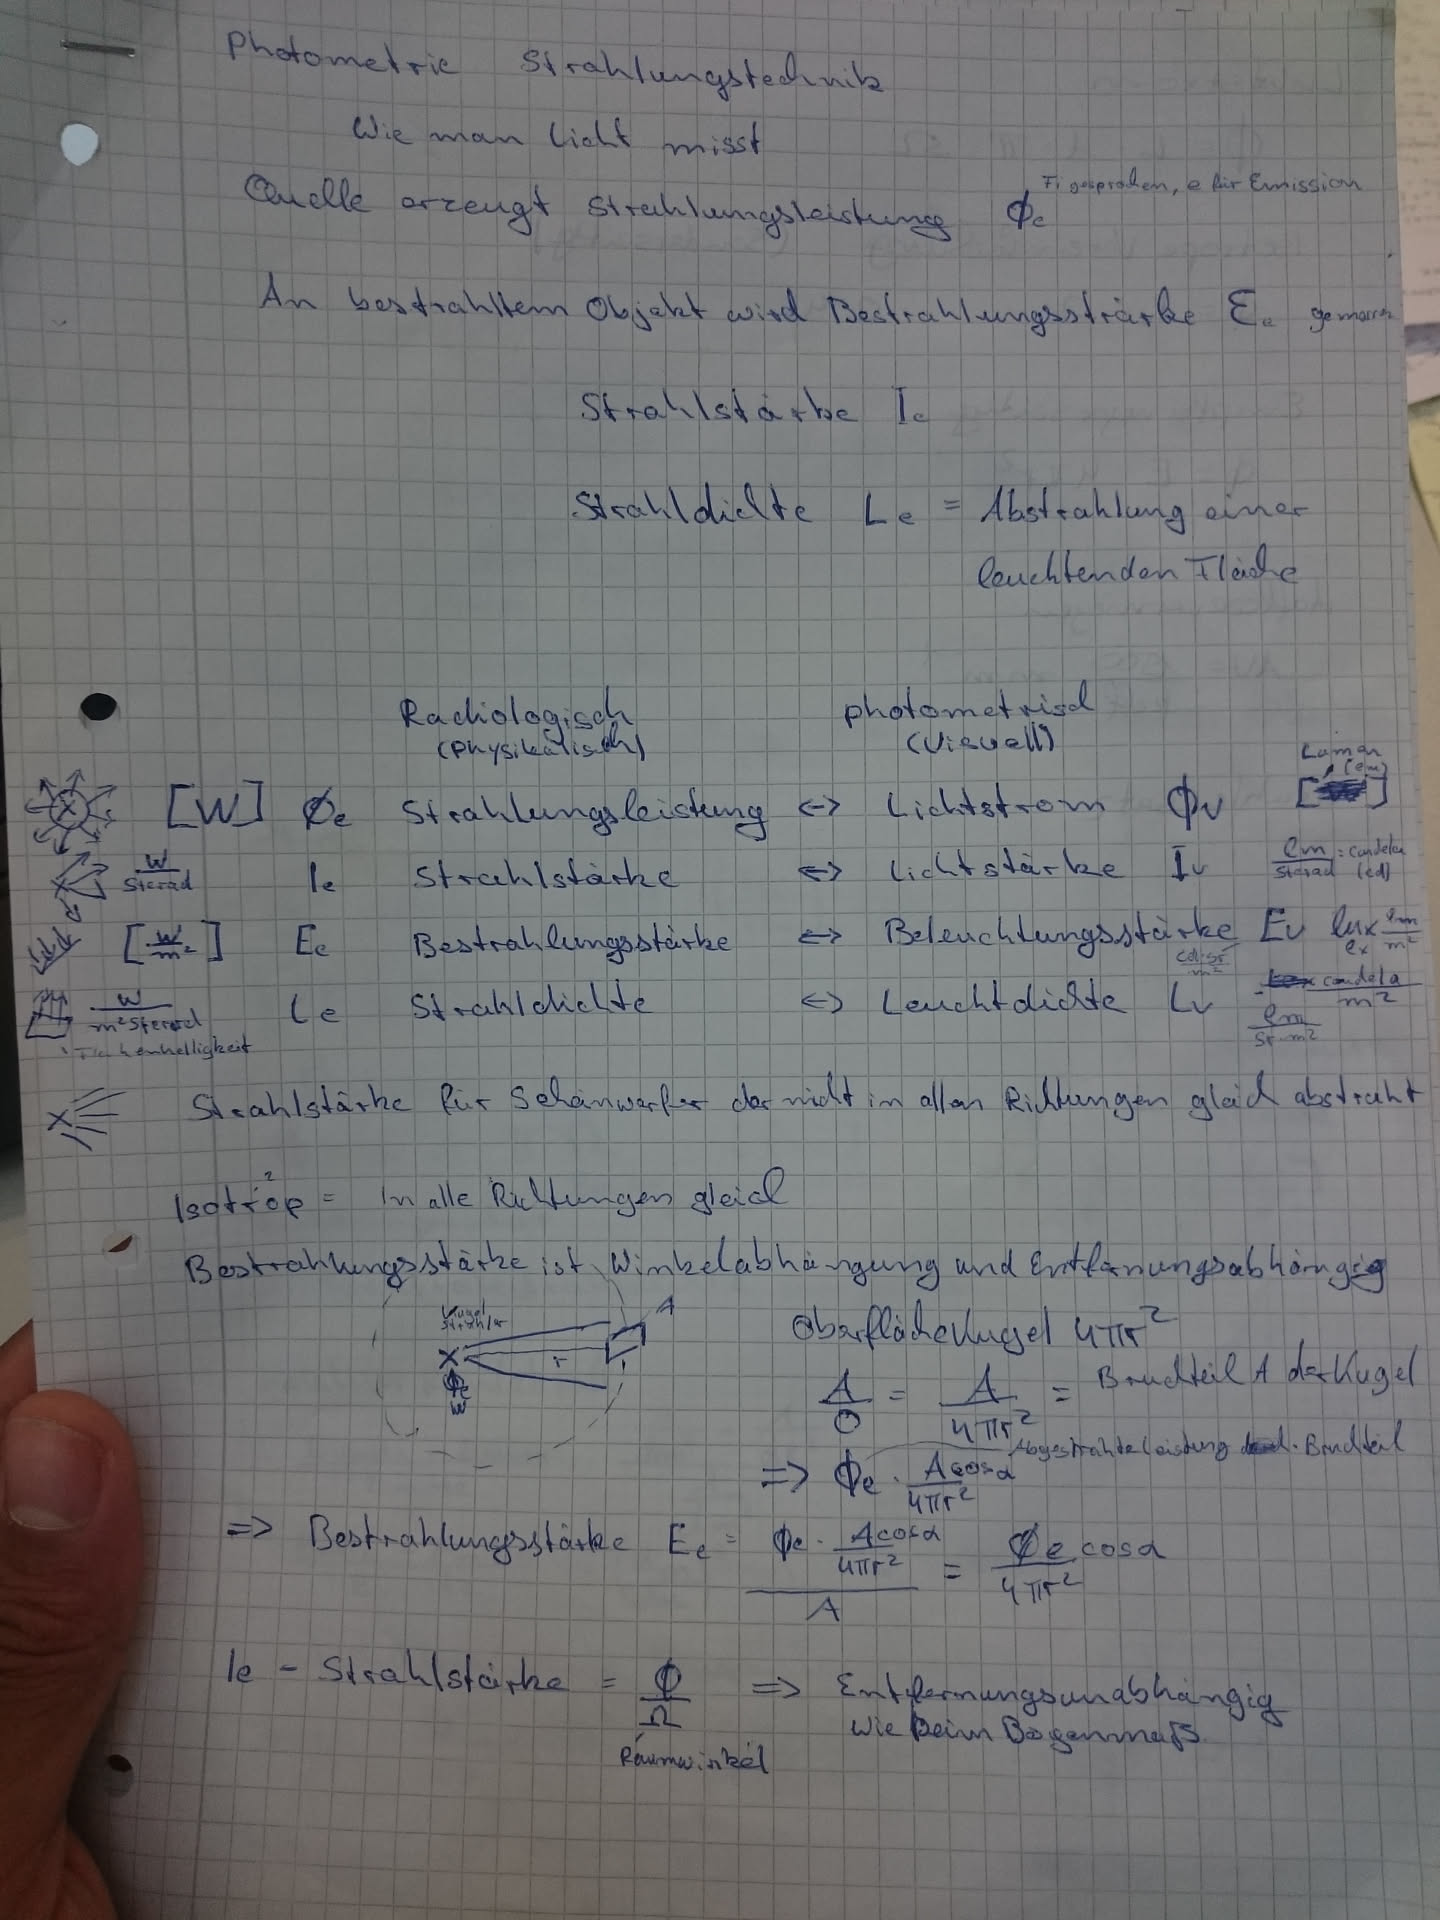 Photometrie Strahlungstechnik
Wie man Licht misst
Fi gesprochen, e für Emission
Quelle erzeugt Strahlungsleistung ϕe
An bestrahltem Objekt wird Bestrahlungsstärke Ee gemessen
Strahlstärke Ie
Strahldichte Le = Abstrahlung einer
leuchtenden Fläche
Radiologisch photometrisch
(physikalisch) (Visuell)
Lumen
(lm)
[W] ϕe Strahlungsleistung <-> Lichtstrom ϕv [ ]
W/Sterad Ie Strahlstärke <-> Lichtstärke Iv lm/Sterad = candela (cd)
[W/m²] Ee Bestrahlungsstärke <-> Beleuchtungsstärke Ev lux lx lm/m²
cd·sr/m²
W/m²Sterad Le Strahldichte <-> Leuchtdichte Lv candela/m²
lm/sr·m²
Flächenhelligkeit
Strahlstärke für Scheinwerfer der nicht in allen Richtungen gleich abstraht
Isotrop = In alle Richtungen gleich
Bestrahlungsstärke ist Winkelabhängung und Entfernungsabhängig
Kugel
strahler
A
x r
ϕe
W
Oberfläche Kugel 4πr²
A/O = A/4πr² = Bruchteil A der Kugel
Abgestrahlte Leistung · Bruchteil
=> ϕe · A cosα/4πr²
=> Bestrahlungsstärke Ee = (ϕe · A cosα/4πr²)/A = ϕe cosα/4πr²
Ie - Strahlstärke = ϕ/Ω => Entfernungsunabhängig
wie beim Bogenmaß
Raumwinkel